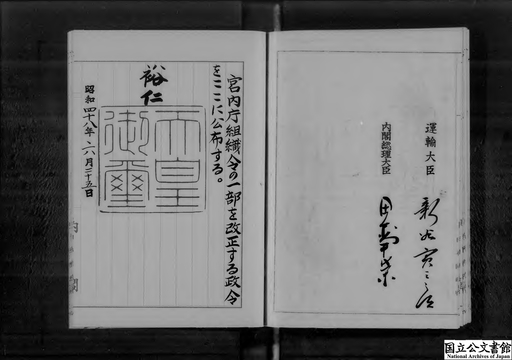 運輸大臣
新谷寅三郎
内閣総理大臣
田中角榮
宮内庁組織令の一部を改正する政令
をここに公布する。
裕仁
天皇
御璽
昭和四十八年六月二十五日
内閣
国立公文書館
National Archives of Japan